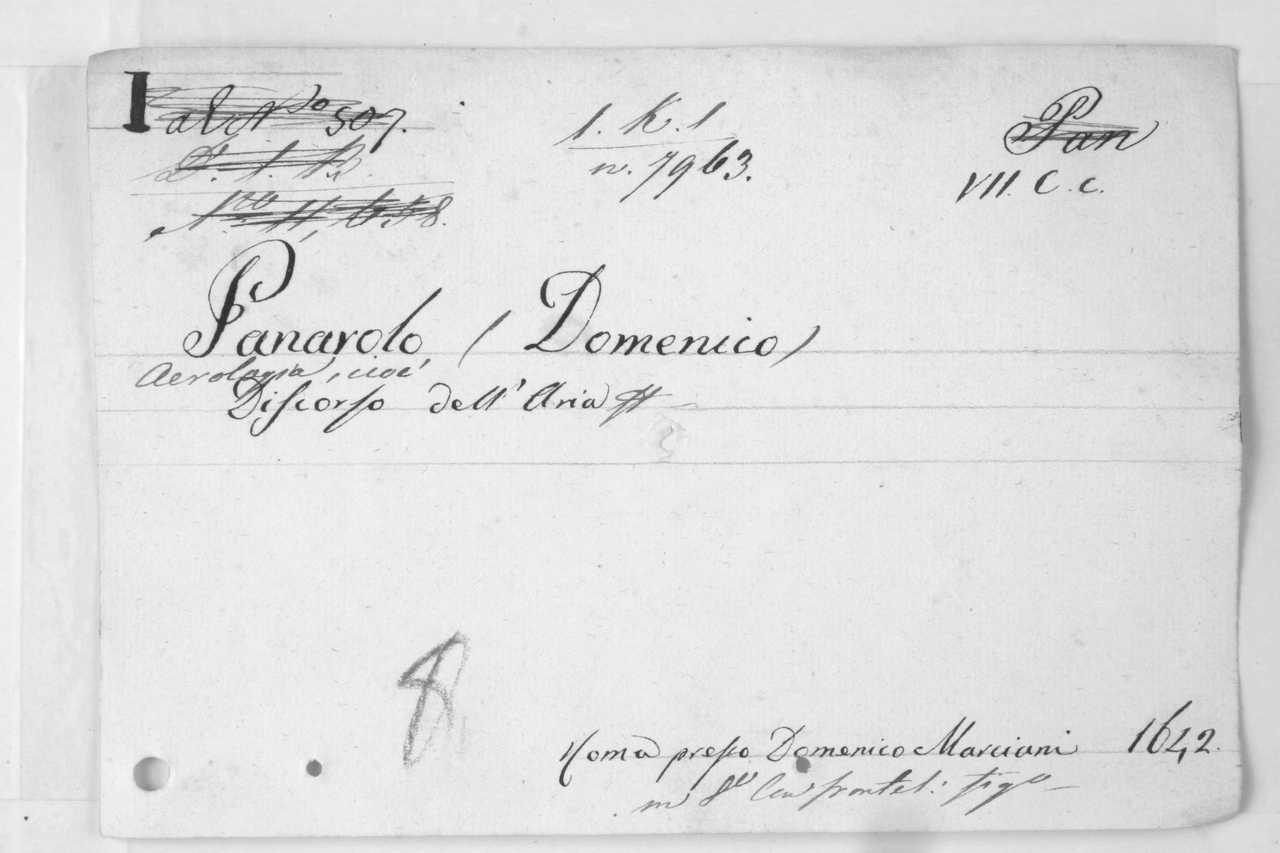 I
al N.ro 507.
1. K. 1
n. 7963.
Pan
VII. C. c.
Panarolo (Domenico)
Aerologia, cioè
Discorso dell' Aria
8
Roma presso Domenico Marciani 1642.
in 8.vo con frontesp: fig.to